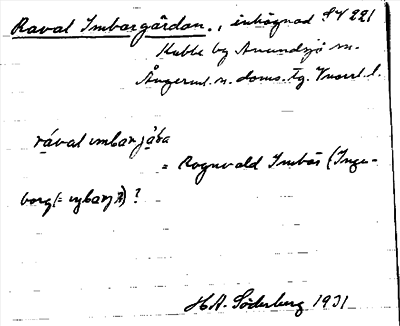 Raval Imbargårdan., inhägnad SV 221
Kubbe by Anundsjö sn.
Ångerml. n. doms. tg. Vnorrl. l.
råval umbar jåẹa
= Rognvald Imbär (Inge-
borg (= ) ?
H.A. Söderberg 1931